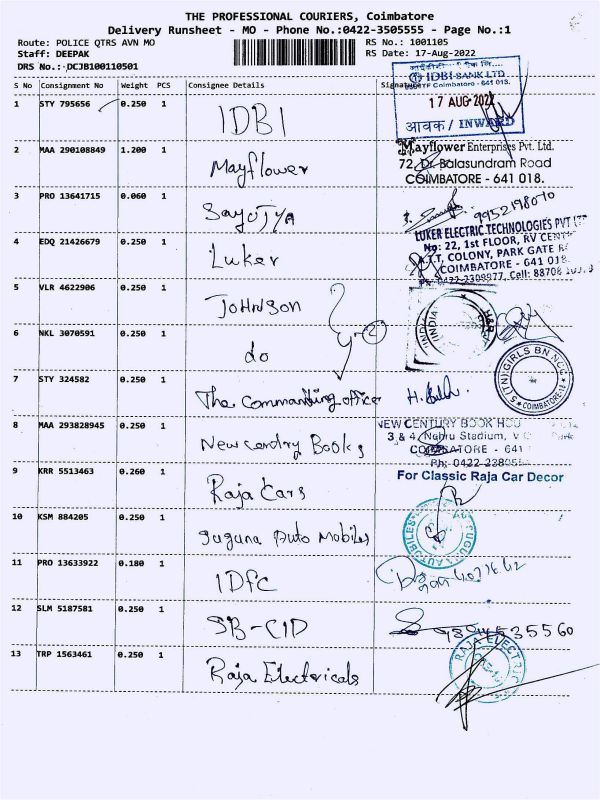 THE PROFESSIONAL COURIERS, Coimbatore
Delivery Runsheet - MO - Phone No.:0422-3505555 - Page No.:1
Route: POLICE QTRS AVN MO RS No.: 1001105
Staff: DEEPAK RS Date: 17-Aug-2022
DRS No.: DCJB100110501
S No Consignment No Weight PCS Consignee Details Signature
IDBI BANK LTD
Coimbatore - 641 018.
17 AUG 2022
आवक / INWARD
1 STY 795656 0.250 1 IDBI
2 MAA 290108849 1.200 1 Mayflower
Mayflower Enterprises Pvt. Ltd.
72, Dr. Balasundram Road
COIMBATORE - 641 018.
3 PRO 13641715 0.060 1 Sayujya
9952198070
4 EDQ 21426679 0.250 1 Luker
LUKER ELECTRIC TECHNOLOGIES PVT LTD
No: 22, 1st FLOOR, RV CENTRE
A.T.T. COLONY, PARK GATE
COIMBATORE - 641 018.
Ph: 0422-2309977, Cell: 88708
5 VLR 4622906 0.250 1 Johnson
INDIA H&R INDIA
6 NKL 3070591 0.250 1 do 2
7 STY 324582 0.250 1 The Commanding officer
5 (TN) GIRLS BN NCC
COIMBATORE-18
8 MAA 293828945 0.250 1 New centry Books
NEW CENTURY BOOK HOU
3 & 4, Nehru Stadium,
COIMBATORE - 641
Ph: 0422-238056
9 KRR 5513463 0.260 1 Raja Cars
For Classic Raja Car Decor
10 KSM 884205 0.250 1 Suguna Auto Mobiles
SUGUNA AUTOMOBILES
11 PRO 13633922 0.180 1 IDFC
12 SLM 5187581 0.250 1 SB-CID
13 TRP 1563461 0.250 1 Raja Electricals
RAJA ELECTRIC